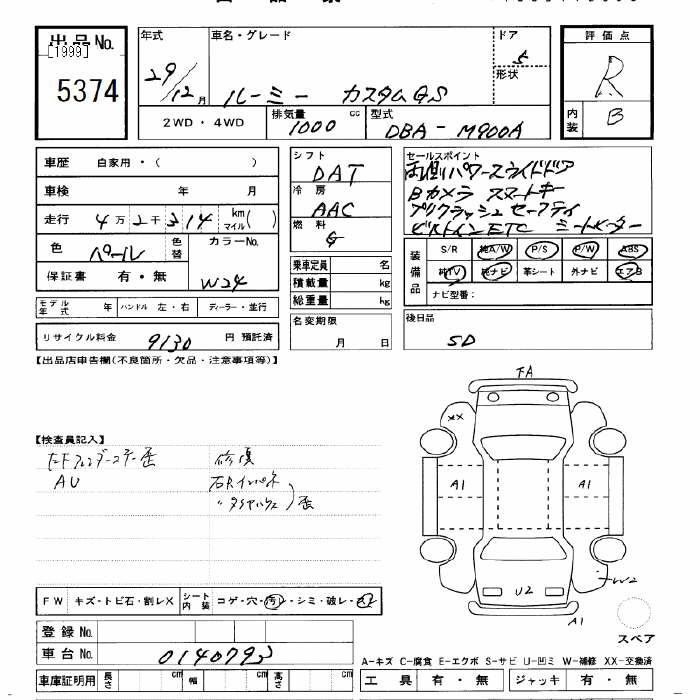 出品No.
[1999]
5374
年式
29/12月
車名・グレード
ルーミー カスタムGS
ドア
5
形状
評価点
R
内装
B
2WD・4WD
排気量
1000 cc
型式
DBA-M900A
車歴 自家用・( )
車検 年 月
走行 4万2千314 km マイル( )
色 パール 色替
カラーNo.
W24
保証書 有・無
モデル年式 年 ハンドル 左・右 ディーラー・並行
リサイクル料金 9130 円 預託済
シフト
DAT
冷房
AAC
燃料
G
乗車定員 名
積載量 kg
総重量 kg
名変期限
月 日
セールスポイント
両側パワースライドドア
Bカメラ スマートキー
プリクラッシュセーフティ
ビルトインETC シートヒーター
装備品
S/R 純A/W P/S P/W ABS
純TV 純ナビ 革シート 外ナビ エアB
ナビ型番:
後日品
SD
【出品店申告欄(不良箇所・欠品・注意事項等)】
【検査員記入】
歪 修復
AU 右Rインパネ
〃タイヤハウス 歪
FW キズ・トビ石・割レX シート内装 コゲ・穴・汚レ・シミ・破レ・
登録No.
車台No. 0140793
車庫証明用 長さ cm 幅 cm 高さ cm
FA
XX
A1
A1
U2
W2
A1
スペア
A-キズ C-腐食 E-エクボ S-サビ U-凹ミ W-補修 XX-交換済
工具 有・無 ジャッキ 有・無